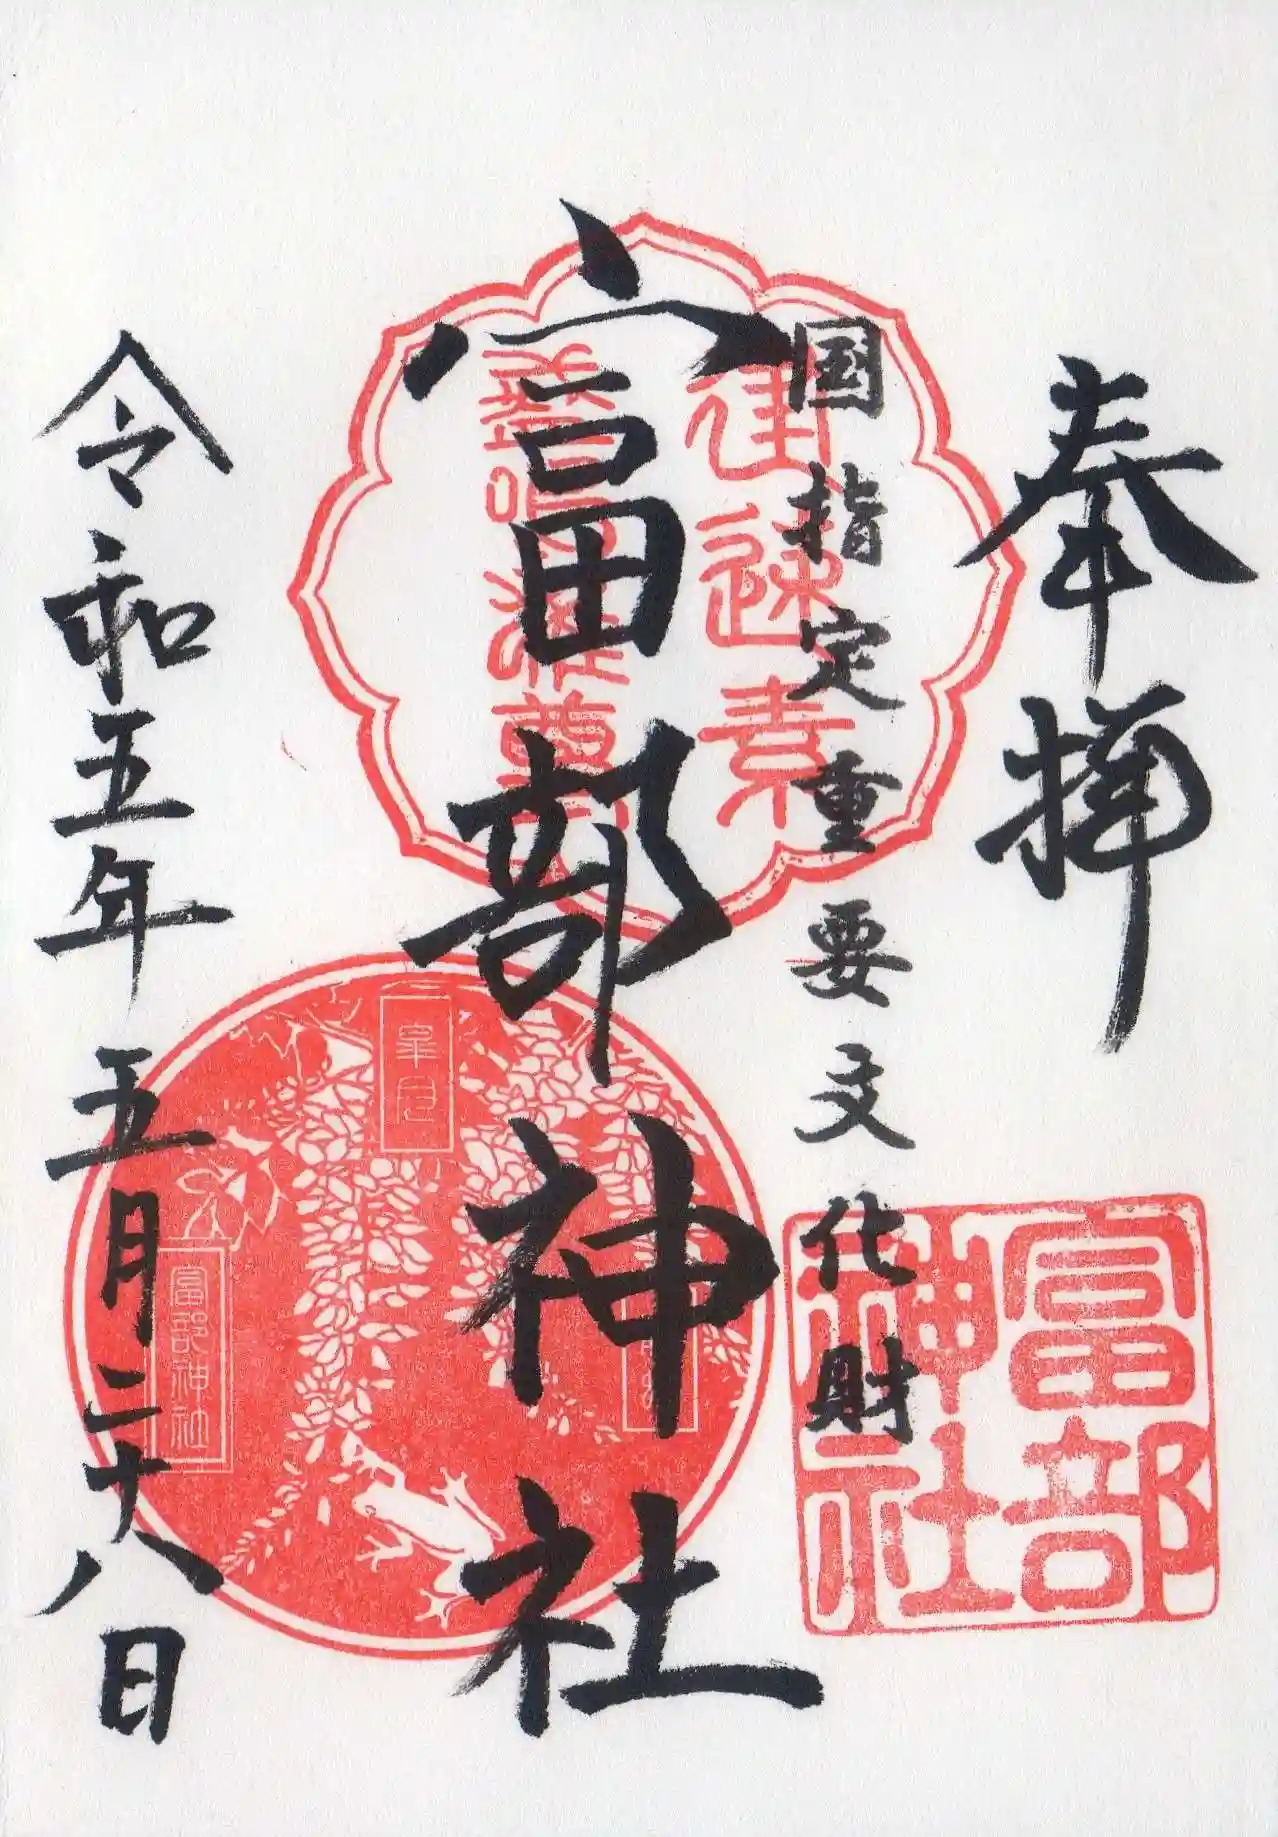 奉拝
国指定重要文化財
富部神社
令和五年五月二十八日
建速素
盞嗚尊
皐月
富部神社
富部神社